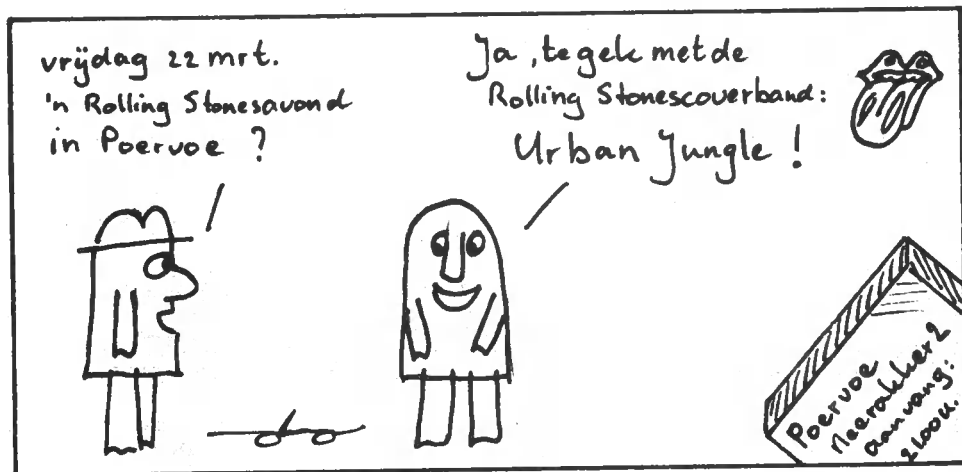 vrijdag 22 mrt.
'n Rolling Stonesavond
in Poervoe ?
Ja, te gek met de
Rolling Stonescoverband:
Urban Jungle !
Poervoe
Meerakker 2
aanvang:
2100u.